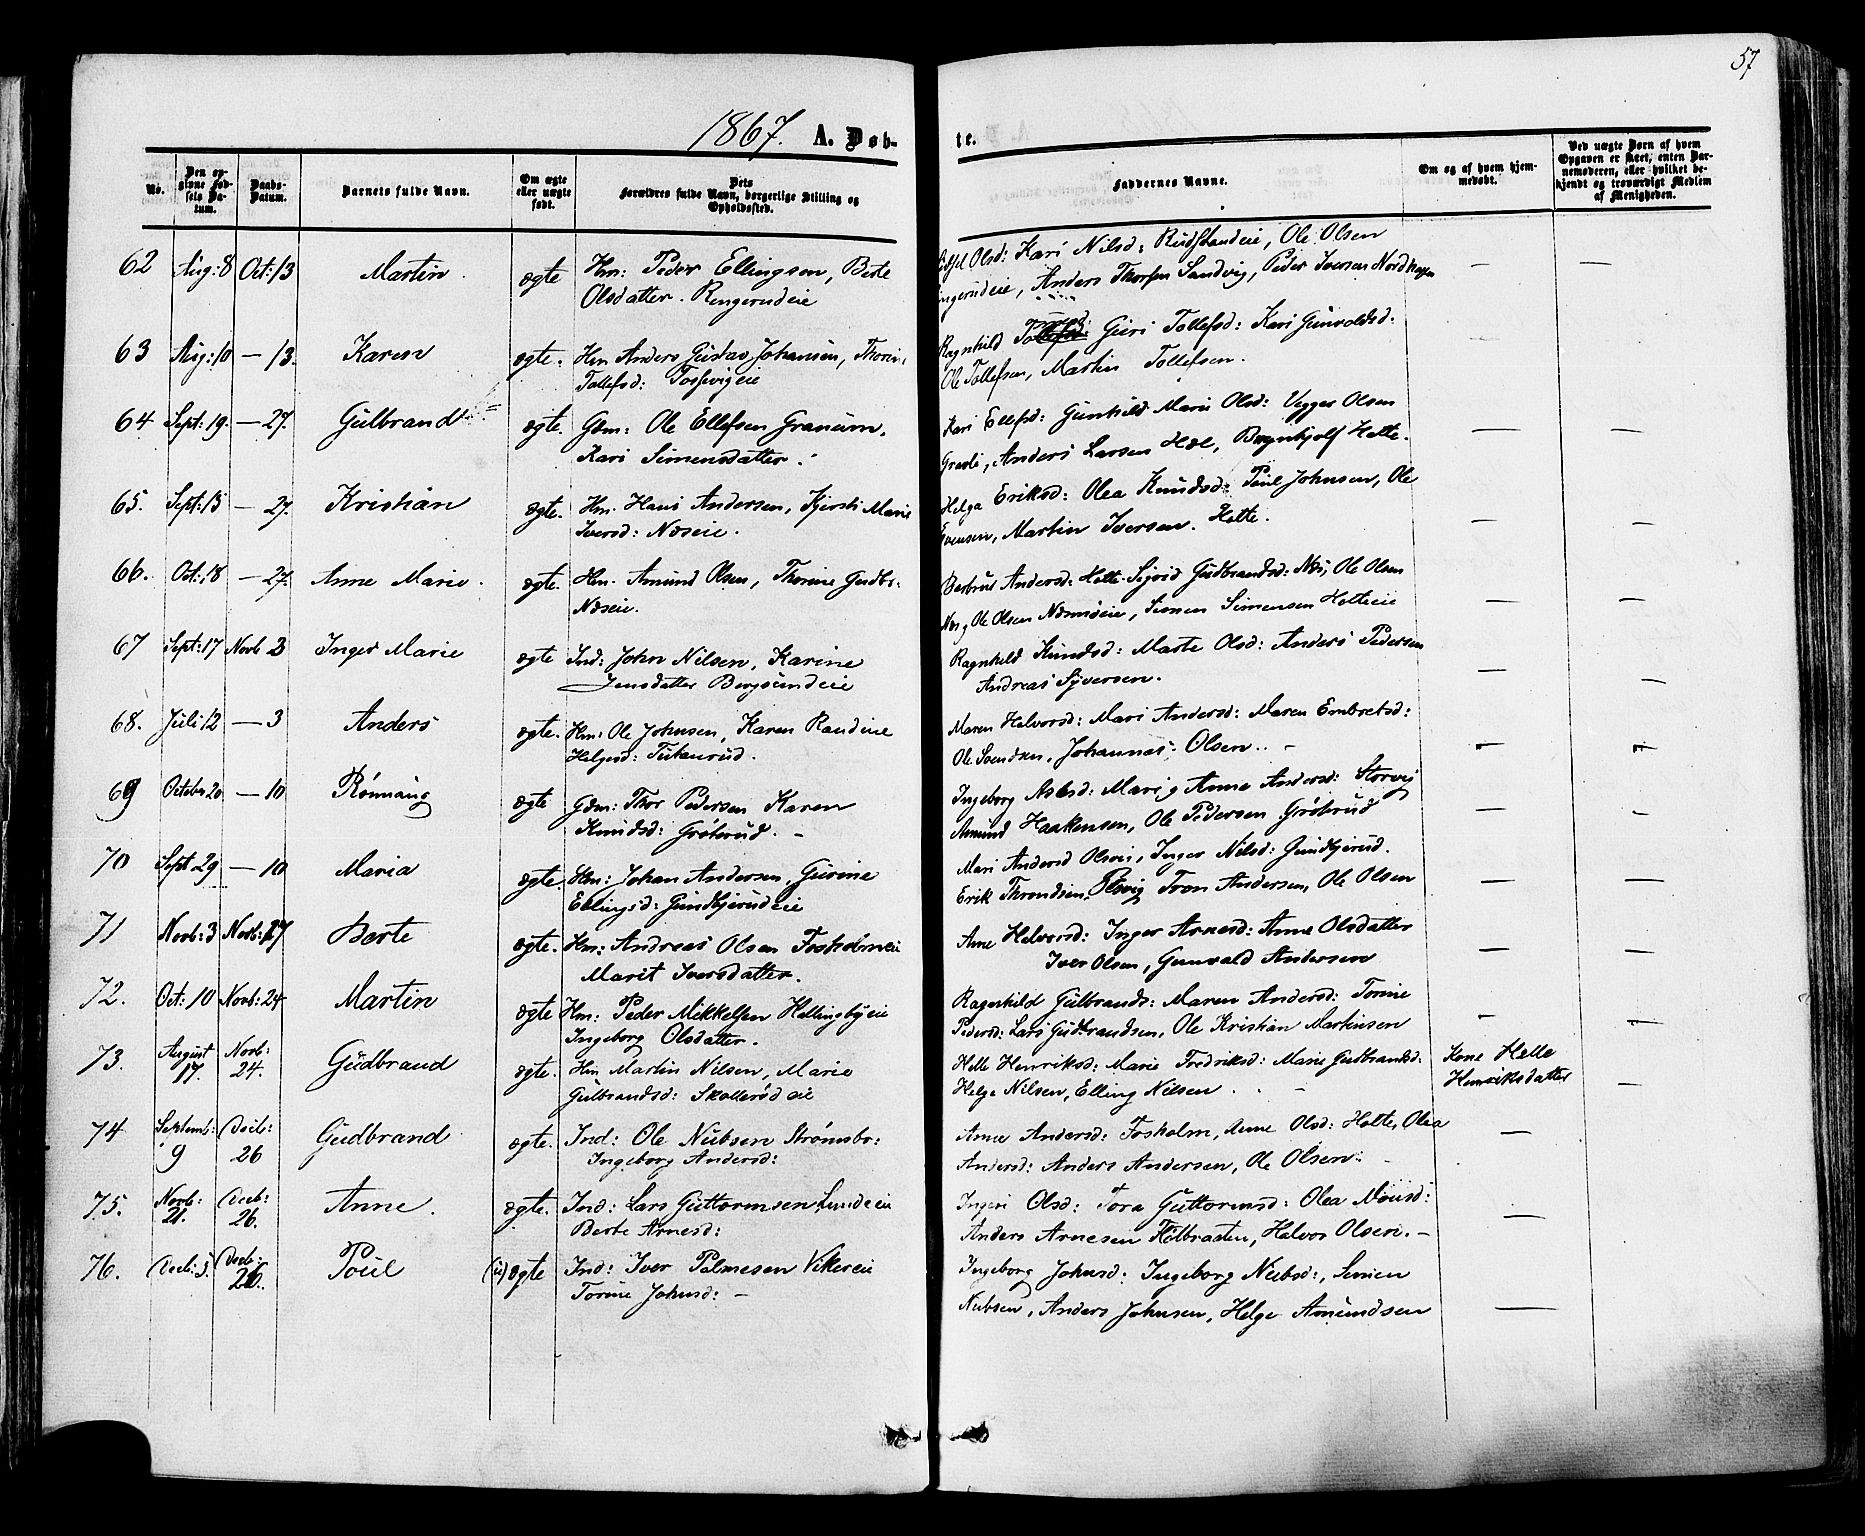 57
1867. A. Døb-
te.
No.
Den opgivne Fødsels Datum.
Daabs-Datum.
Barnets fulde Navn.
Om ægte eller uægte født.
Dets Forældres fulde Navn, borgerlige Stilling og Opholdssted.
Faddernes Navne.
Om og af hvem hjemmedøbt.
Ved uægte Børn af hvem Opgaven er skeet, enten Barnemoderen, eller hvilket bekjendt og troværdigt Medlem af Menigheden.
62 Aug: 8 Oct: 13 Martin ægte Hm: Peder Ellingsen, Berte Olsd: Kari Nilsd: Rudstandeie, Ole Olsen — —
Olsdatter. Rengerudeie Anders Thorsen Sandvig, Peder Iversen Nordhagen
63 Aug: 10 — 13. Karen ægte. Hm Anders Gustav Johansen, Thorine Ragnhild Guri Tollefsd: Kari Gunvoldsd:
Tollefsd: Fossvigeie Ole Tollefsen, Martin Tollefsen.
64 Sept: 19. — 27. Gulbrand ægte. Gbm: Ole Ellefsen Granum, Kari Ellefsd: Gunhild Marie Olsd: Vegger Olsen — —
Kari Simensdatter. Anders Larsen Hæl, Brynhjolf Holte.
65. Sept: 15 — 27. Kristian ægte. Hm. Hans Andersen, Kjersti Marie Helga Eriksd: Olea Knudsd: Poul Johnsen, Ole — —
Iversd: Næseie. Evensen, Martin Iversen. Holte.
66. Oct: 18 — 27. Anne Marie. ægte. Hm. Amund Olsen, Thorine Gudbr: Berthe Andersd: Holte. Sigrid Gudbrandsd: Næs, Ole Olsen — —
Næseie. Næs og Ole Olsen Næsmoeie, Simen Simensen Holteeie
67 Sept: 17 Novb 3 Inger Marie ægte Ind: John Nilsen, Karine Ragnhild Knudsd: Marte Olsd: Anders Pedersen — —
Jensdatter Bergsundeie Andreas Syversen.
68. Juli 12 — 3 Anders ægte. Hm: Ole Johnsen, Karen Randine Maren Halvorsd: Mari Andersd: Maren Embretsd: — —
Helgesd: Tukenrud. Ole Svendsen, Johannes Olsen. —
69 October 20 — 10 Rønnaug ægte Gbm: Thor Pedersen Karen Ingeborg Aslesd: Mari og Anne Andersd: Storvig — —
Knudsd: Grøterud. — Amund Haakensen, Ole Pedersen Grøterud
70 Sept 29 — 10 Maria ægte. Hm: Johan Andersen, Gurine Mari Andersd Inger Nilsd: Gundhjerud. — —
Ellingsd: Gundhjerudeie Erik Throndsen, Tron Andersen, Ole Olsen
71 Novb: 3 Novb: 17 Berte ægte. Hm: Andreas Olsen Fosholmeie Anne Halvorsd: Inger Arnesd: Anne Olsdatter — —
Marit Iversdatter. Iver Olsen, Gunvald Andersen
72. Oct: 10 Novb: 24 Martin ægte Hm: Peder Mikkelsen Hellingbyeie Ragnhild Gulbrands: Maren Andersd: Torine — —
Ingeborg Olsdatter. Pedersd: Lars Gudbrandsen, Ole Kristian Martinsen
73. August 17. Novb: 24. Gudbrand ægte. Hm Martin Nilsen, Marie Helle Henriksd: Marie Fredriksd: Marie Gulbrandsd: Kone Helle —
Gulbrandsd: Skallerødeie Helge Nilsen, Elling Nilsen. — Henriksdatter
74 Septemb: 9 Decb: 26 Gudbrand ægte. Ind: Ole Nubsen Strømsbr: Anne Andersd: Fosholm, Anne Olsd: Holte, Olea —
Ingeborg Andersd: Andersd: Anders Andersen, Ole Olsen. —
75. Novb: 21. Decb: 26. Anne. ægte. Ind: Lars Guttormsen Lundeie Ingeri Olsd: Tora Guttormsd: Olea Monsd: —
Berte Arnesd: Anders Arnesen Halvor Olsen. —
76. Decb: 5. Decb: 26. Poul (u)ægte Ind: Iver Palmesen Vikereie Ingeborg Johnsd: Ingeborg Nubsd:, Simen —
Torine Johnsd: — Nubsen, Anders Johnsen, Helge Amundsen